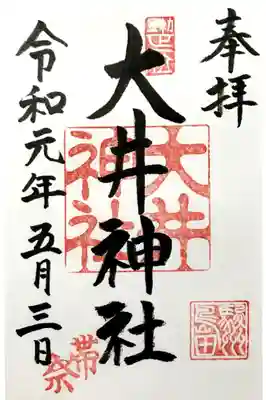 奉拝
大井神社
大井神社
駿州島田
令和元年五月三日
帯祭